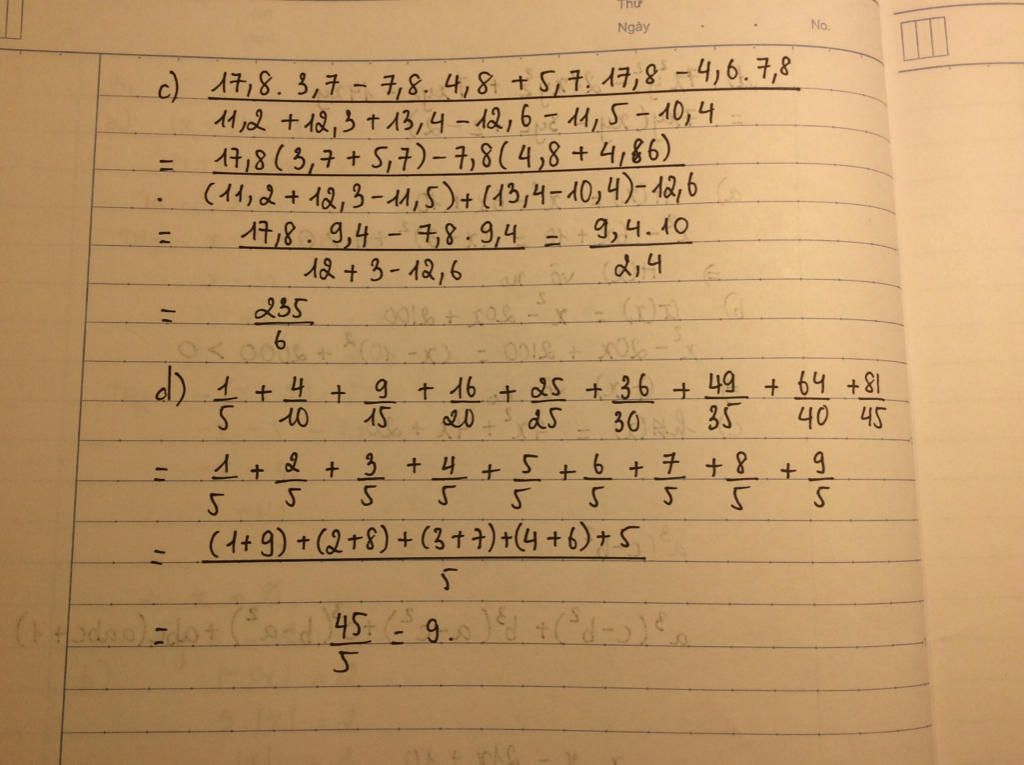 Thứ
Ngày . . No.
c) (17,8 . 3,7 - 7,8 . 4,8 + 5,7 . 17,8 - 4,6 . 7,8) / (11,2 + 12,3 + 13,4 - 12,6 - 11,5 - 10,4)
= (17,8(3,7 + 5,7) - 7,8(4,8 + 4,6)) / ((11,2 + 12,3 - 11,5) + (13,4 - 10,4) - 12,6)
= (17,8 . 9,4 - 7,8 . 9,4) / (12 + 3 - 12,6) = (9,4 . 10) / 2,4
= 235/6
d) 1/5 + 4/10 + 9/15 + 16/20 + 25/25 + 36/30 + 49/35 + 64/40 + 81/45
= 1/5 + 2/5 + 3/5 + 4/5 + 5/5 + 6/5 + 7/5 + 8/5 + 9/5
= ((1+9) + (2+8) + (3+7) + (4+6) + 5) / 5
= 45/5 = 9.